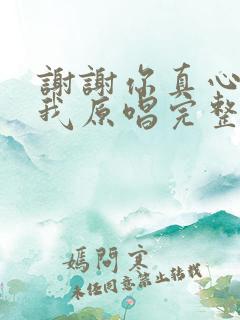 謝謝你真心
我原唱完整
媽問寒
未经同意禁止转载